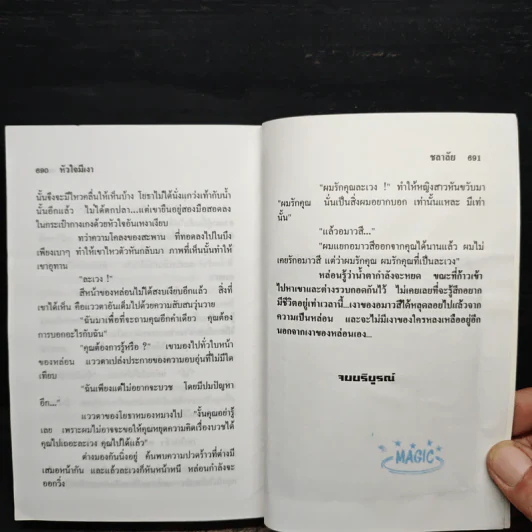 ๖๙๐ หัวใจมีเงา
นั้นจึงจะมีไหวคลื่นให้เห็นบ้าง โยธาไม่ได้นั่งแกว่งเท้ากับน้ำ
นั้นอีกแล้ว ไม่ได้ตกปลา...แต่เขายืนอยู่สองมือสอดลง
ในกระเป๋ากางเกงด้วยหัวใจอันเหงาเงียบ
ทว่าความไกลของสะพาน ที่ทอดลงไปในบึง
เพียงเบาๆ ทำให้เขาไหวตัวหันกลับมา ภาพที่เห็นนั้นทำให้
เขาอุทาน
"ละเวง !"
สีหน้าของหล่อนไม่ได้สงบเงียบอีกแล้ว สิ่งที่
เขาได้เห็น คือแววตาอันเต็มไปด้วยความสับสนวุ่นวาย
"ฉันมาเพื่อที่จะถามคุณอีกคำเดียว คุณต้อง
การบอกอะไรกับฉัน"
"คุณต้องการรู้หรือ ?" เขามองไปทั่วใบหน้า
ของหล่อน แววตาเปล่งประกายของความอบอุ่นที่ไม่มีใด
เทียบ
"ฉันเพียงแต่ไม่อยากจะบวช โดยมีปมปัญหา
อีก..."
แววตาของโยธาหมองหมางไป "งั้นคุณอย่ารู้
เลย เพราะผมไม่อาจจะขอให้คุณหยุดความคิดเรื่องบวชได้
คุณไปเถอะละเวง คุณไปได้แล้ว"
ต่างมองกันนิ่งอยู่ ค้นพบความปวดร้าวที่ต่างมี
เสมอหน้ากัน และแล้วละเวงก็หันหน้าหนี หล่อนกำลังจะ
ออกวิ่ง
ชลาลัย 691
"ผมรักคุณละเวง !" ทำให้หญิงสาวหันขวับมา
"ผมรักคุณ นั่นเป็นสิ่งผมอยากบอก เท่านั้นแหละ มีเท่า
นั้น"
"แล้วอมาวสี..."
"ผมแยกอมาวสีออกจากคุณได้นานแล้ว ผมไม่
เคยรักอมาวสี แต่ว่าผมรักคุณ ผมรักคุณที่เป็นละเวง"
หล่อนรู้ว่าน้ำตากำลังจะหยด ขณะที่ก้าวเข้า
ไปหาเขาและต่างรวบกอดกันไว้ ไม่เคยเลยที่จะรู้สึกอยาก
มีชีวิตอยู่เท่าเวลานี้...เงาของอมาวสีได้หลุดลอยไปแล้วจาก
ความเป็นหล่อน และจะไม่มีเงาของใครหลงเหลืออยู่อีก
นอกจากเงาของหล่อนเอง...
จบบริบูรณ์
MAGIC